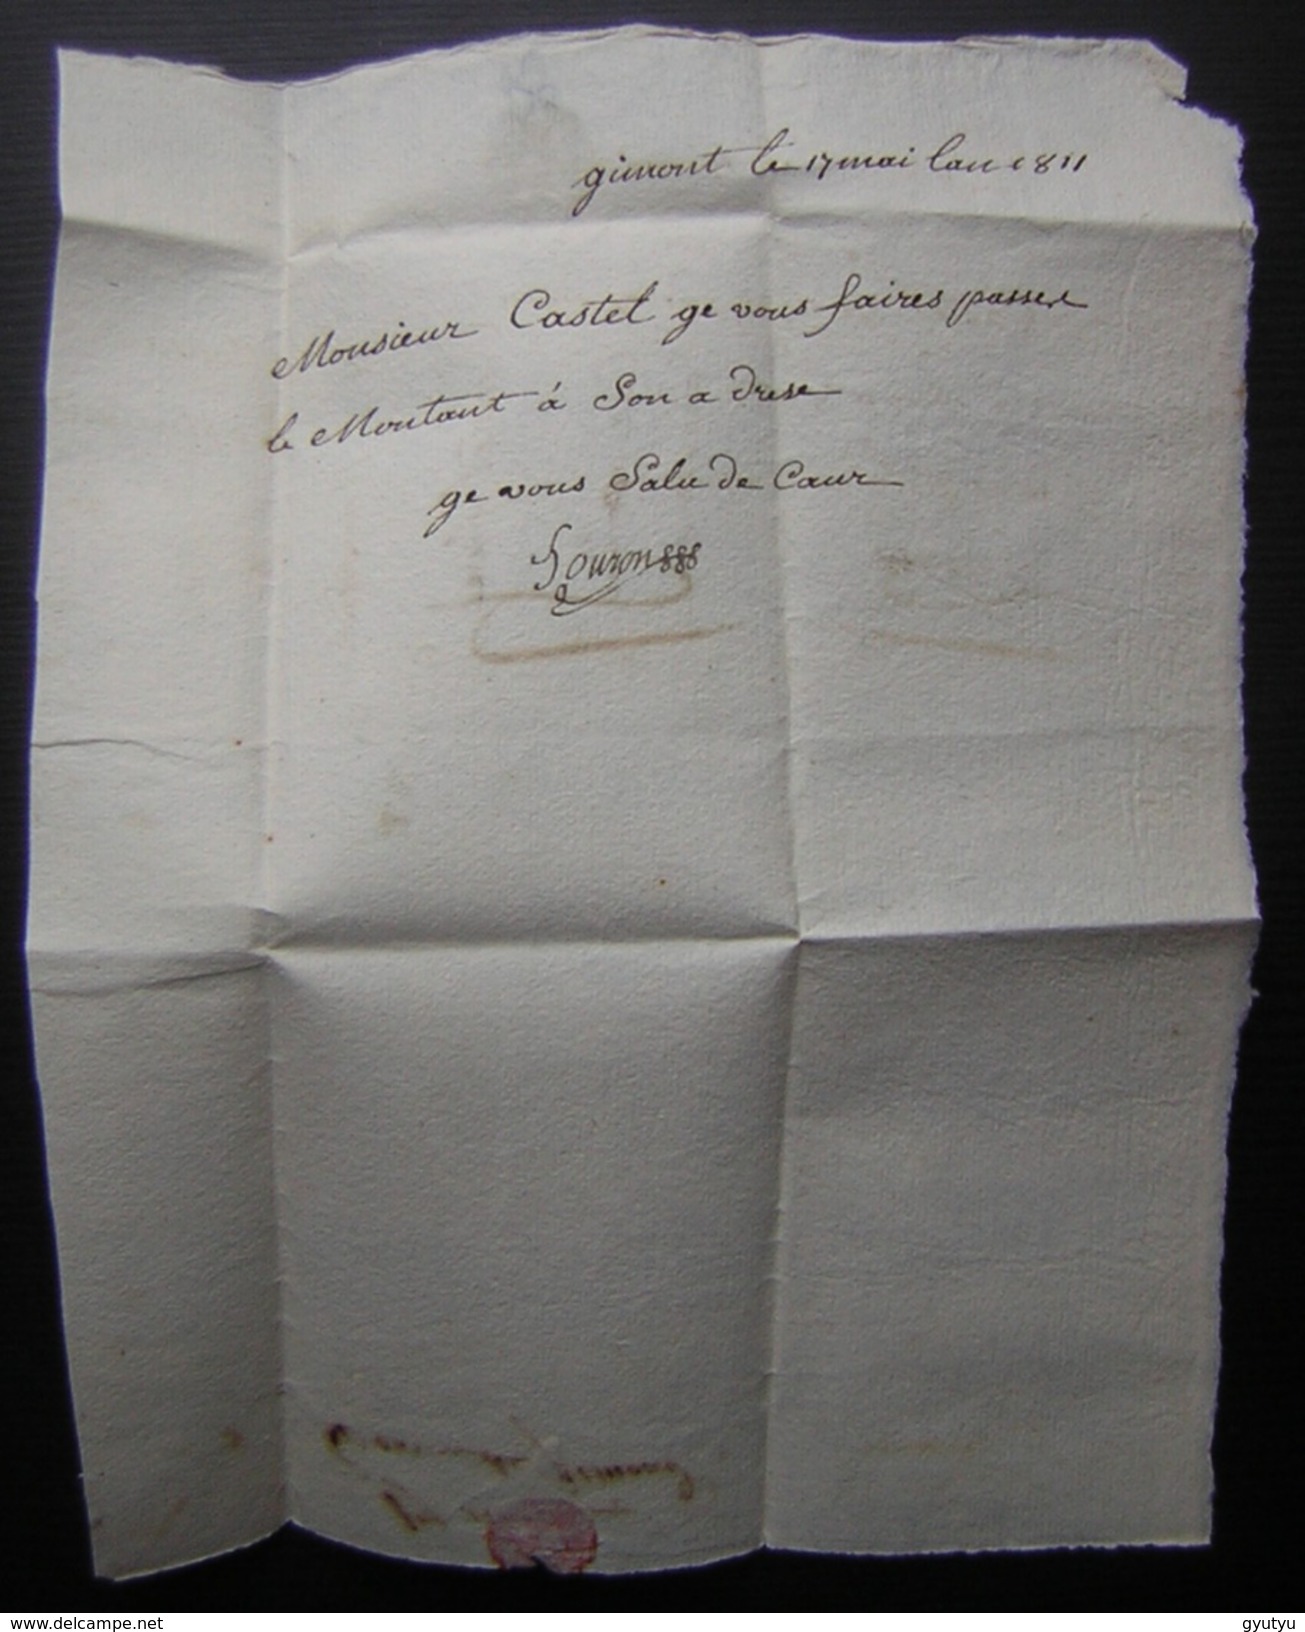 gimont le 17 mai lan 1811
Monsieur Castel ge vous faires passer
le Montant á Son a drese
ge vous Salu de Cour
Houron
www.delcampe.net
gyutyu